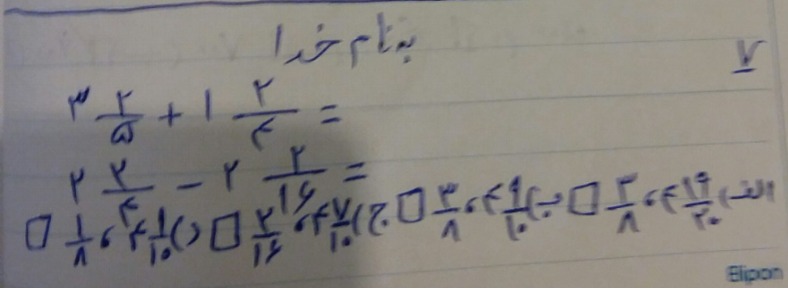 به نام خدا
۷
۳ ۲/۵ + ۱ ۲/۴ =
۲ ۲/۴ − ۲ ۲/۱۶ =
الف) ۴ ۱۹/۲۰ و ۳/۸ □ ب) ۴ ۹/۱۰ و ۳/۸ □ ج) ۴ ۷/۱۰ و ۲/۱۶ □ د) ۴ ۱/۱۰ و ۱/۸ □
Elipon